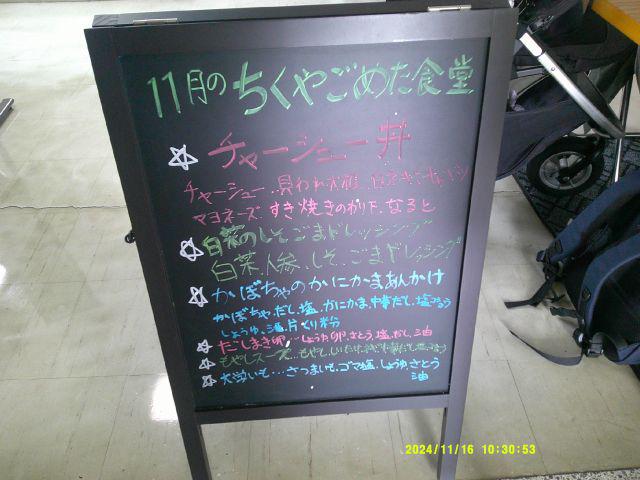 11月のちくやごめた食堂
☆チャーシュー丼
チャーシュー、貝われ大根、
マヨネーズ、すき焼きのかり下、なると
☆白菜のしそごまドレッシング
白菜、人参、しそ、ごまドレッシング
☆かぼちゃのかにかまあんかけ
かぼちゃ、だし、塩、かにかま、中華だし、塩
しょうゆ、酒、片くり粉
☆だしまき卵…しょうゆ、卵、さとう、塩、だし、油
☆もやしスープ…もやし、
☆大学いも…さつまいも、ゴマ塩、しょうゆ、さとう
油
2024/11/16 10:30:53